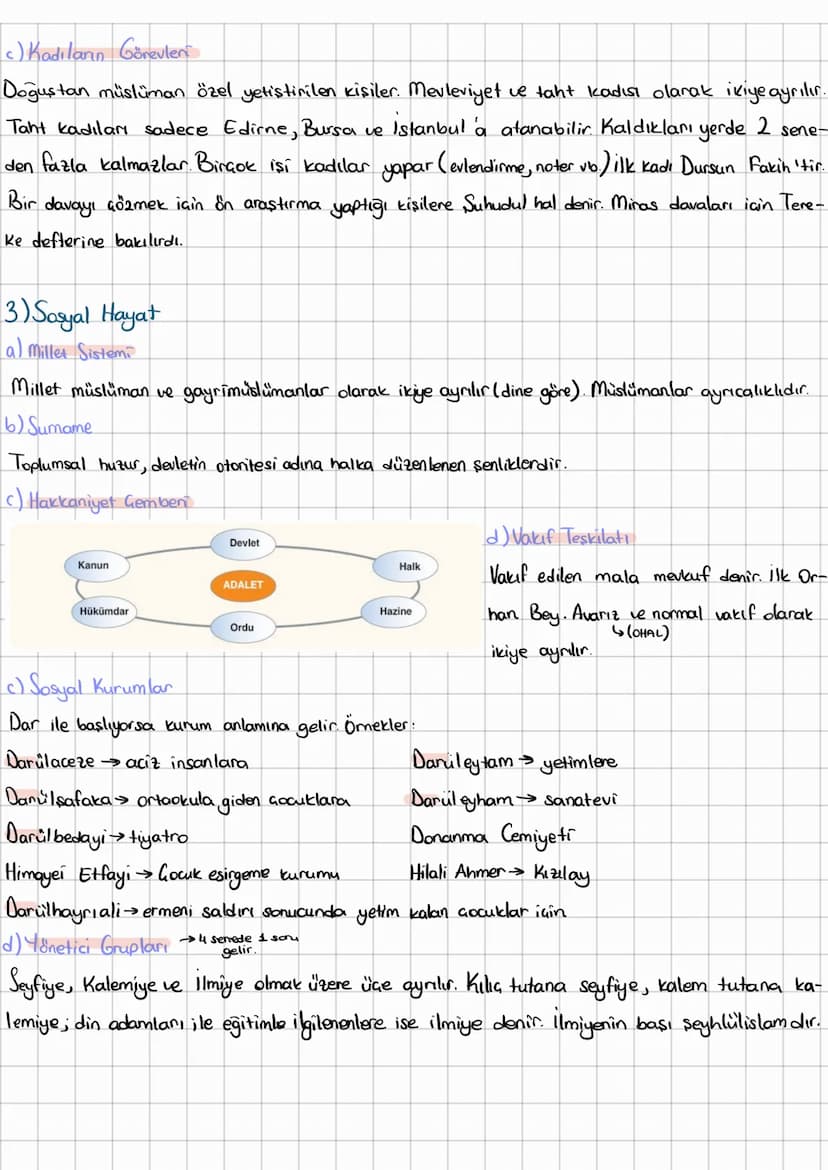 c) Kadıların Görevleri
Doğuştan müslüman özel yetiştirilen kişiler. Mevleviyet ve taht kadısı olarak ikiye ayrılır.
Taht kadıları sadece Edirne, Bursa ve İstanbul'a atanabilir. Kaldıkları yerde 2 sene-
den fazla kalmazlar. Birçok işi kadılar yapar (evlendirme, noter vb.) İlk kadı Dursun Fakih'tir.
Bir davayı çözmek için ön araştırma yaptığı kişilere Şuhudul hal denir. Miras davaları için Tere-
ke defterine bakılırdı.
3) Sosyal Hayat
a) Millet Sistemi
Millet müslüman ve gayrimüslümanlar olarak ikiye ayrılır (dine göre). Müslümanlar ayrıcalıklıdır.
b) Surname
Toplumsal huzur, devletin otoritesi adına halka düzenlenen şenliklerdir.
c) Hakkaniyet Çemberi
Devlet
Kanun
Halk
ADALET
Hükümdar
Hazine
Ordu
d) Vakıf Teşkilatı
Vakıf edilen mala mevkuf denir. İlk Or-
han Bey. Avarız ve normal vakıf olarak
↳ (OHAL)
ikiye ayrılır.
c) Sosyal Kurumlar
Dar ile başlıyorsa kurum anlamına gelir. Örnekler:
Darülaceze → aciz insanlara
Darüleytam → yetimlere
Darülşafaka → ortaokula giden çocuklara
Darüleyham → sanatevi
Darülbedayi → tiyatro
Donanma Cemiyeti
Himayei Etfayi → Çocuk esirgeme kurumu
Hilali Ahmer → Kızılay
Darülhayriali → ermeni saldırı sonucunda yetim kalan çocuklar için
d) Yönetici Grupları → 4 senede 1 soru
gelir.
Seyfiye, Kalemiye ve İlmiye olmak üzere üçe ayrılır. Kılıç tutana seyfiye, kalem tutana ka-
lemiye; din adamları ile eğitimle ilgilenenlere ise ilmiye denir. İlmiyenin başı şeyhlülislamdır.